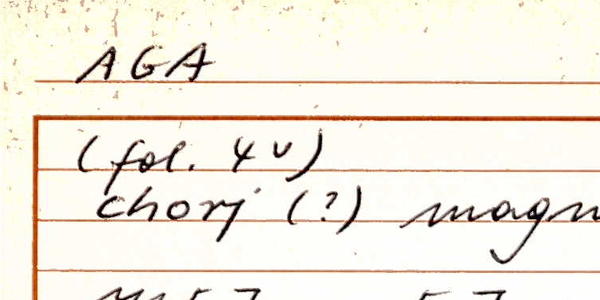 AGA
(fol. 4v)
chorj (?) magn